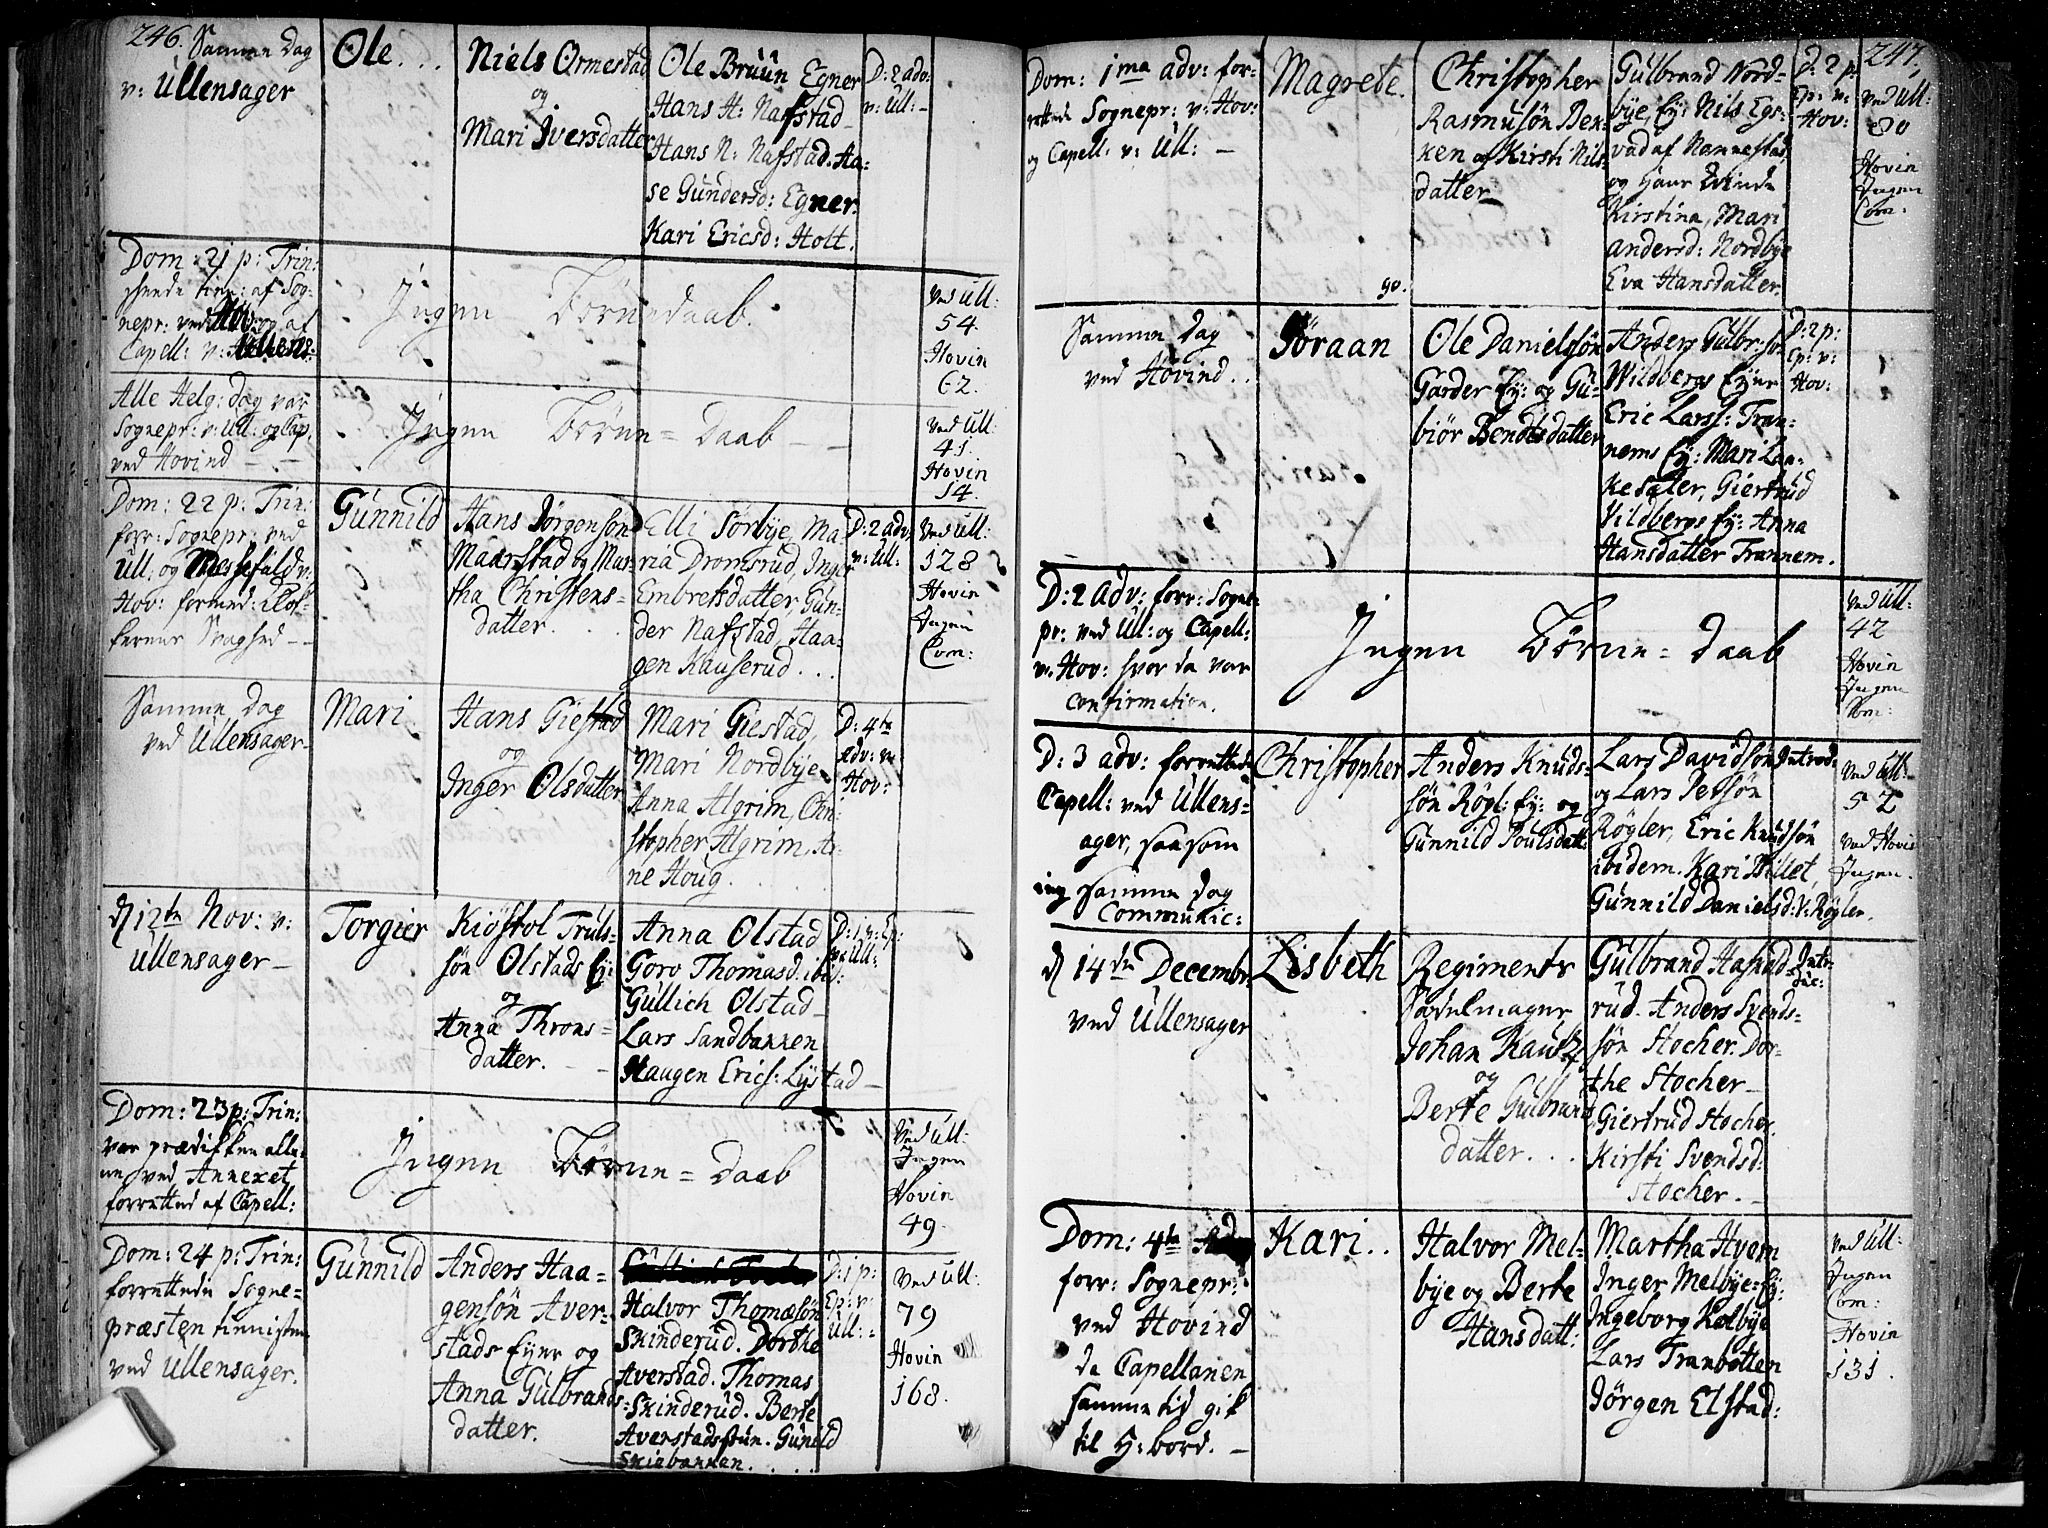 246.
Samme Dag
v: Ullensager
Ole. . .
Niels Ormestad
og
Mari Iversdatter
Ole Bruun Egner
Hans H: Nafstad
Hans N: Nafstad. Aa=
se Gundersd: Egner.
Kari Ericsd: Holt.
D: 2 adv:
v: Ull: –
Dom: 21 p: Trin:
af Sog-
nepr: ved Hov: og af
Capell: v: Ullens:
Ingen Børnedaab.
Ved Ull:
54.
Hovin
62.
Alle Helg: dag var
Sognepr: v: Ull: og Cap.
ved Hovind – . –
Ingen Børne = Daab – –
Ved Ull:
41.
Hovin
14.
Dom: 22 p: Trin:
forr: Sognepr: ved
Ull: og Messefald v:
Hov: formed:
Svaghed – –
Gunnild
Hans Jørgensøn
Maarstad og Mar=
tha Christens=
datter. . .
Elli Sørbye, Ma=
ria Dromsrud, Inger
Embretsdatter, Gun=
der Nafstad, Haa=
gen Kauserud . . .
D: 2 adv:
v: Ull:
Ved Ull:
128
Hovin
Ingen
Com:
Samme Dag
ved Ullensager
Mari
Hans Giestad
og
Inger Olsdatter
Mari Giestad,
Mari Nordbye
Anna Algrim, Chri=
stopher Algrim, A=
ne Houg.
D: 4te
Adv: v:
Hov:
d 12te Nov: v:
Ullensager –
Torgier
Kiøstol Truls=
søn Olstads Ey:
og
Anna Throns=
datter. – –
Anna Olstad
Goro Thomasd: ibid:
Gullich Olstad
Lars Sandbakken
Haugen Erics: Lystad –
D: 1 p: Ep:
v: Ull:
Dom: 23 p: Trin:
var prædikken alle=
ne ved Annexet
forretted af Capell:
Ingen Børne = Daab
Ved Ull:
Ingen
Hovin
49.
Dom: 24 p: Trin:
forrettede Sogne=
præsten tienisten
ved Ullensager.
Gunnild
Anders Haa=
gensøn Aver=
stads Eyer og
Anna Gulbrands=
datter.
Halvor Thomæsøn
Skinderud. Dorthe
Averstad. Thomas
Skinderud. Berte
Averstadstun. Gunild
Skiebakken. . . .
D: 1 p:
Ep: v:
Ull: =
Ved Ull:
79
Hovin
168.
247.
Dom: 1ma adv: for=
rettede Sognepr: v: Hov:
og Capell: v: Ull: –
Magrete.
Christopher
Rasmusøn Bek=
ken og Kirsti Nils
datter
Gulbrand Nord=
bye, Ey: Nils Egs=
vad af Nannestad
og hans Qvinde
Kirstina, Mari
andersd: Nordbye
Eva Hansdatter.
D: 2 p:
Ep: v:
Hov:
Ved Ull:
80
Hovin
Ingen
Com:
90.
Samme Dag
ved Hovind. .
Søraan
Ole Danielsøn
Garder Ey: og Gu=
biør Bendtsdatter
Anders Gulbr:søn
Wildbergs Eyer
Eric Larss: Tran=
nems Ey: Mari Laa=
kesæter, Giertrud
Vildbergs Ey: Anna
Hansdatter Trannem.
D: 2 p:
Ep: v:
Hov:
D: 2 adv: forr: Sogne=
pr: ved Ull: og Capell:
v. Hov: hvor da var
confirmation.
Ingen Børne = Daab
Ved Ull:
42
Hovin
Ingen
Com:
D: 3 adv: forrettede
Capell: ved Ullens=
ager, saasom
ing samme Dag
Communic:
Christopher
Anders Knuds=
søn Røgl: Ey: og
Gunnild Poulsdatt:
Lars Davidsøn
og Lars Persøn
Røgler, Eric Knudsøn
ibidem. Kari Willet,
Gunnild Danielsd: v: Røgler.
Introd:
Ved Ull:
52
ved Hovin
Ingen.
d 14de Decembr:
ved Ullensager
Lisbeth
Regiments
Sadelmager
Johan Kautz
og
Berte Gulbrands
datter. . .
Gulbrand
rud. Anders Svends=
søn Stocher. Dor=
the Stocher
Giertrud Stocher.
Kirsti Svendsd:
Stocher. –
Intr=
duc:
Dom: 4te
forr: Sognepr:
ved Hovind
da Capellanen
samme tid gik
til H: bord. –
Kari. .
Halvor Mel=
bye og Berte
Hansdatt:
Martha Hvem
Inger Melbye: Ey:
Ingeborg Kolbye
Lars Tranbotten
Jørgen Elstad:
Ved Ull:
Ingen
Com:
Hovin
131.